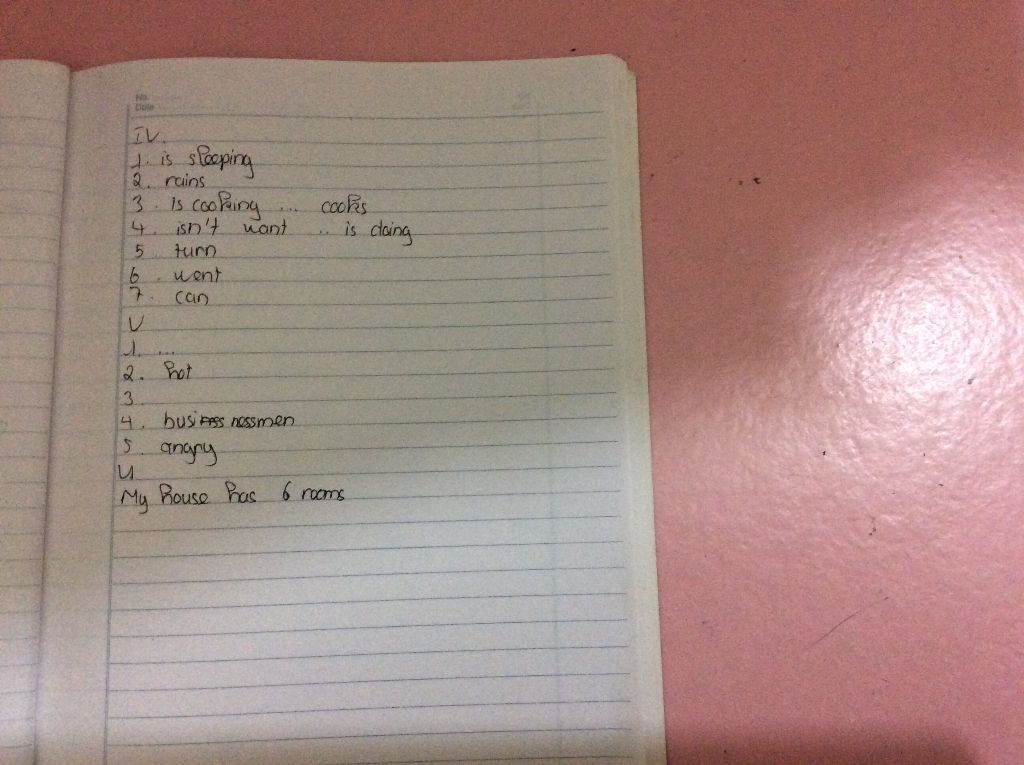 No.
Date
IV.
1. is sleeping
2. rains
3. is cooking ... cooks
4. isn't want ... is doing
5 turn
6. went
7. can
V
1. ...
2. hot
3.
4. business nessmen
5. angry
VI
My house has 6 rooms